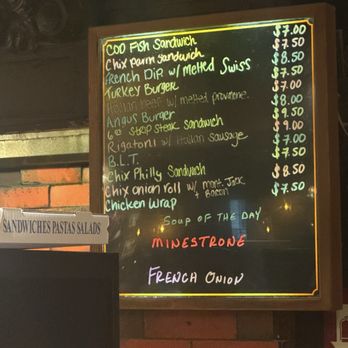 COD Fish Sandwich $7.00
Chix Parm Sandwich $7.50
French Dip w/ Melted Swiss $8.50
Turkey Burger $7.50
Italian beef w/ melted provolone. $7.00
Angus Burger $8.00
6oz Strip Steak Sandwich $9.50
Rigatoni w/ Italian Sausage $9.00
B.L.T. $7.00
Chix Philly Sandwich $7.50
Chix onion roll w/ mont. Jack + Bacon $8.50
Chicken Wrap $7.50
Soup of the Day
Minestrone
French Onion
SANDWICHES PASTAS SALADS